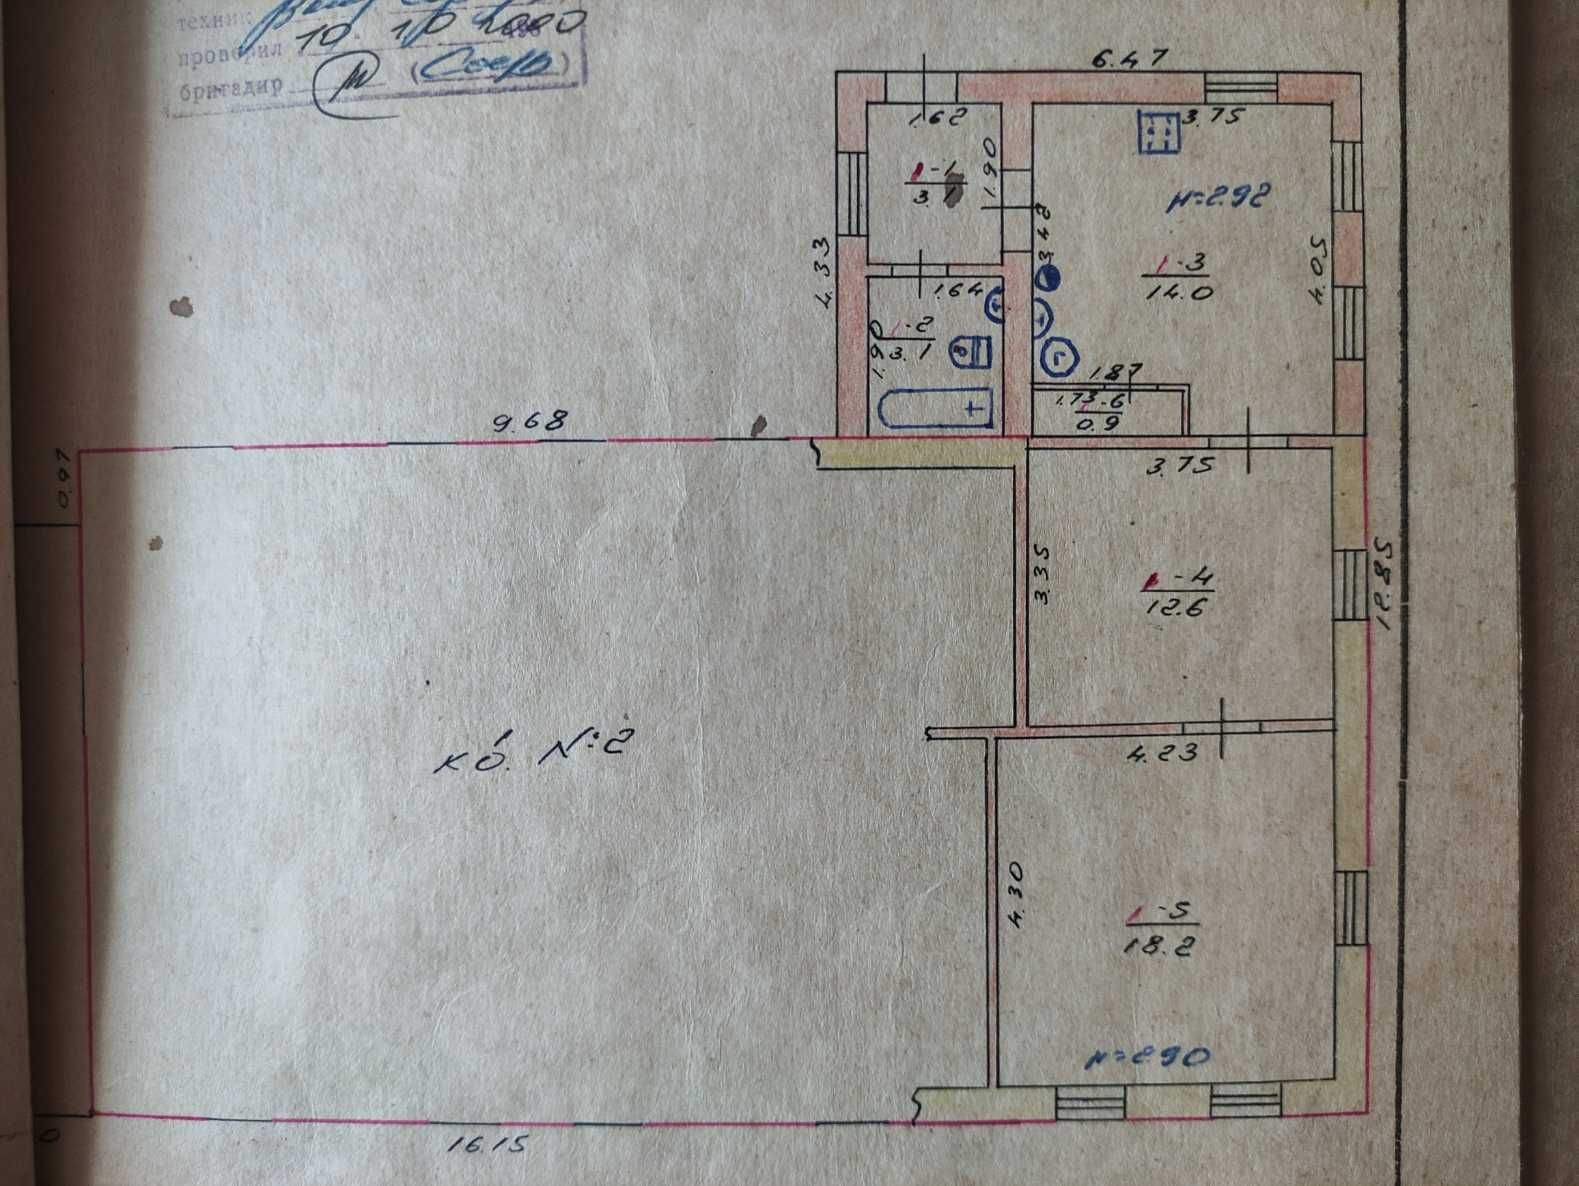 техник
проверил 10. 10 2000
бригадир
6.47
1.62
3.75
1-1
3.1
1.90
н=2.92
3.42
4.33
1-3
14.0
4.05
1.64
1-2
3.1
1.90
1.87
1.73
1-6
0.9
9.68
3.75
0.97
3.35
1-4
12.6
12.85
кв. №2
4.23
4.30
1-5
18.2
н=2.90
16.15